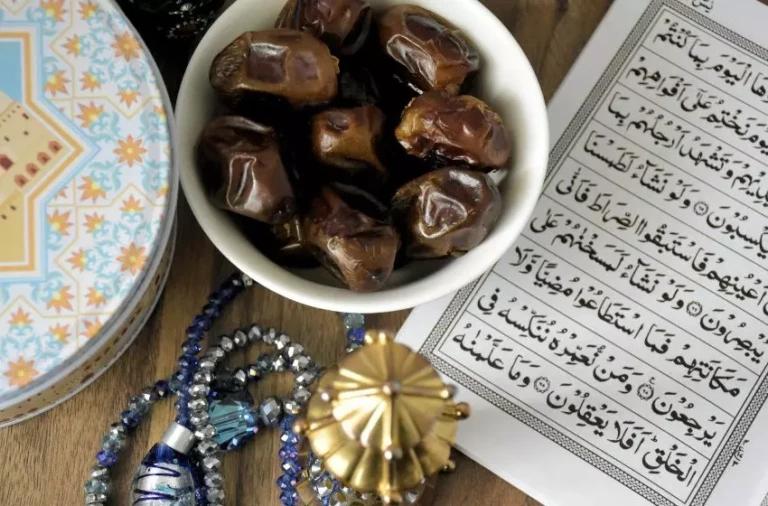 يٰسٓ
الْيَوْمَ بِمَا كُنْتُمْ
نَخْتِمُ عَلٰٓى اَفْوَاهِهِمْ
وَتَشْهَدُ اَرْجُلُهُمْ بِمَا
يَكْسِبُوْنَ ۝ وَلَوْ نَشَآءُ لَطَمَسْنَا
اَعْيُنِهِمْ فَاسْتَبَقُوا الصِّرَاطَ فَاَنّٰى
يُبْصِرُوْنَ ۝ وَلَوْ نَشَآءُ لَمَسَخْنٰهُمْ عَلٰى
مَكَانَتِهِمْ فَمَا اسْتَطَاعُوْا مُضِيًّا وَّلَا
يَرْجِعُوْنَ ۝ وَمَنْ نُّعَمِّرْهُ نُنَكِّسْهُ فِى
الْخَلْقِ ؕ اَفَلَا يَعْقِلُوْنَ ۝ وَمَا عَلَّمْنٰهُ